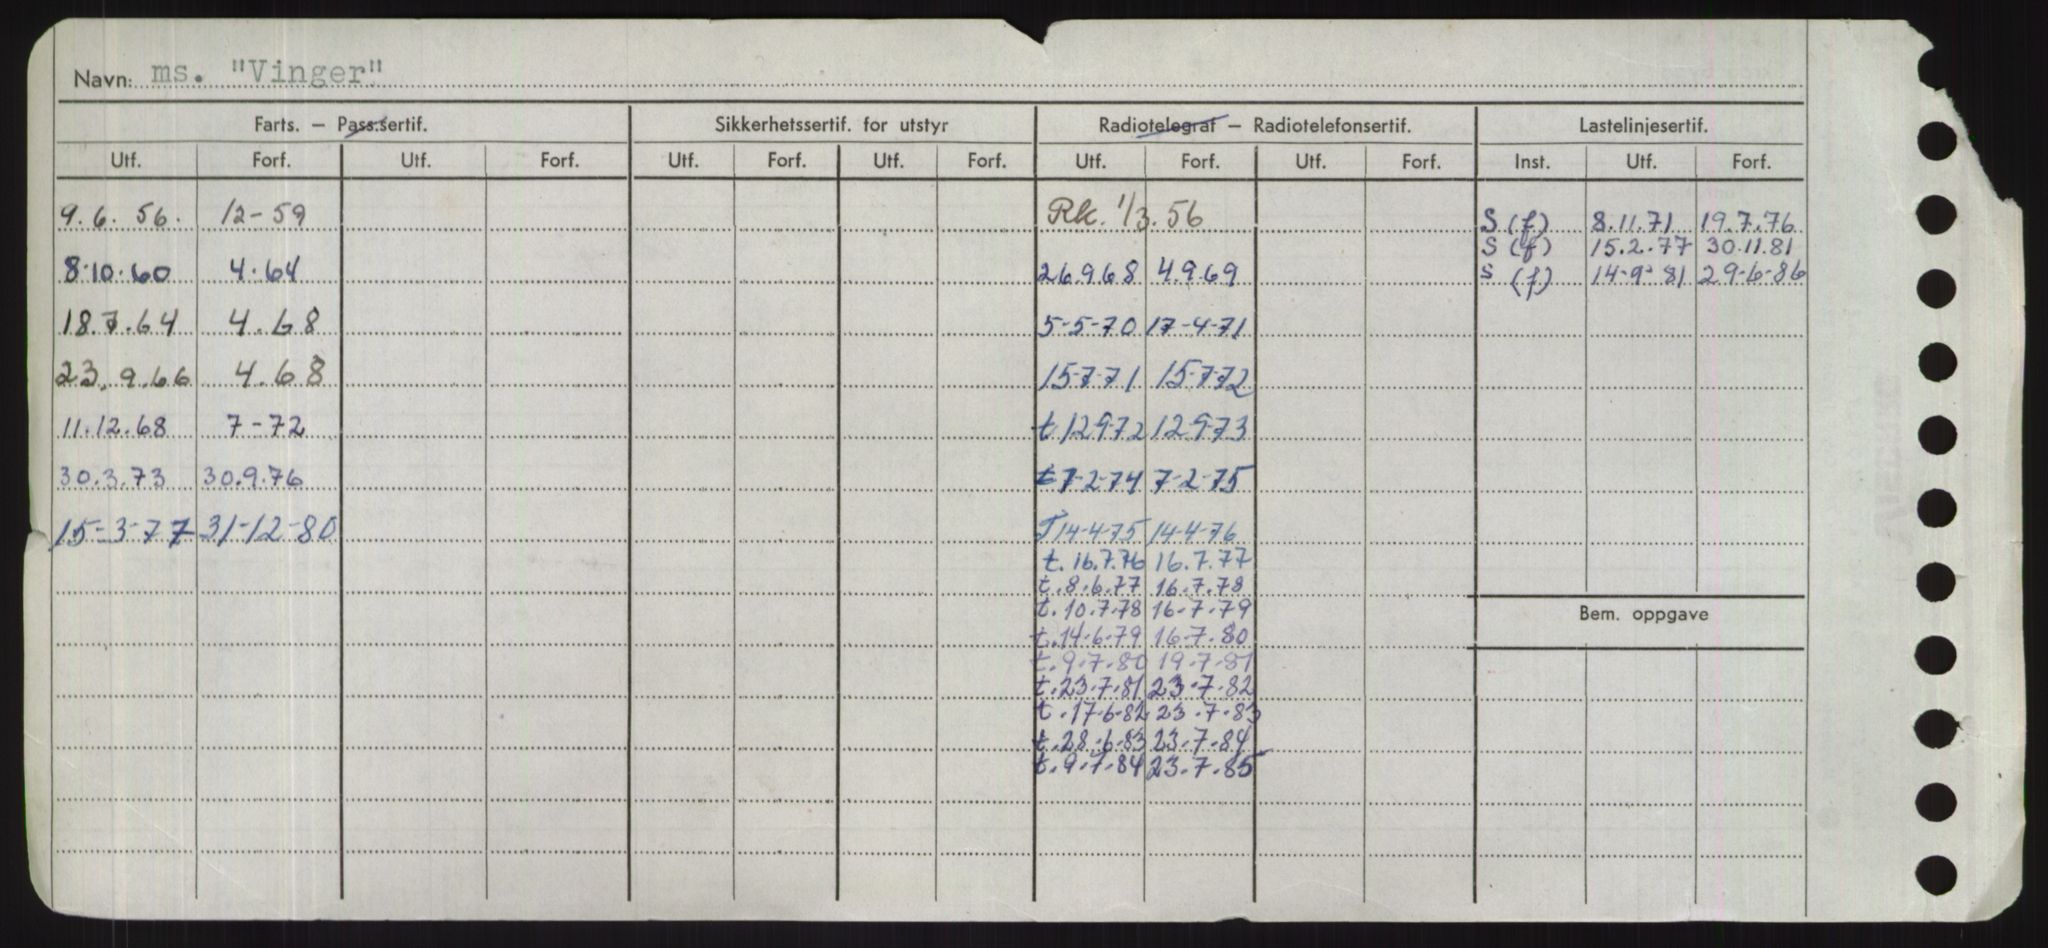 Navn: ms. "Vinger"
Farts. – Pass.sertif. Sikkerhetssertif. for utstyr Radiotelegraf – Radiotelefonsertif. Lastelinjesertif.
Utf. Forf. Utf. Forf. Utf. Forf. Utf. Forf. Utf. Forf. Utf. Forf. Inst. Utf. Forf.
9.6.56. 12-59 Rk. 1/3.56 S (f) 8.11.71 19.7.76
S (f) 15.2.77 30.11.81
8.10.60 4.64 26.9.68 4.9.69 S (f) 14-9-81 29-6-86
18.7.64 4.68 5-5-70 17-4-71
23.9.66 4.68 15-7-71 15-7-72
11.12.68 7-72 t 12972 12973
30.3.73 30.9.76 t 7-2-74 7-2-75
15-3-77 31-12-80 T 14-4-75 14-4-76
t. 16.7.76 16.7.77
t. 8.6.77 16.7.78
t. 10.7.78 16-7.79
Bem. oppgave
t. 14-6-79 16-7.80
t. 9.7.80 19.7-81
t. 23.7.81 23.7.82
t. 17-6-82 23.7.83
t. 28-6-83 23.7.84
t. 9.7.84 23.7.85